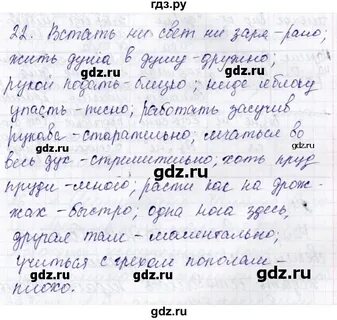 gdz.ru
22. Встать ни свет ни заря - рано;
жить душа в душу - дружно;
рукой подать - близко; негде яблоку
упасть - тесно; работать засучив
рукава - старательно; мчаться во
весь дух - стремительно; хоть пруд
пруди - много; расти как на дрож-
жах - быстро; одна нога здесь,
другая там - моментально;
учиться с грехом пополам -
плохо.